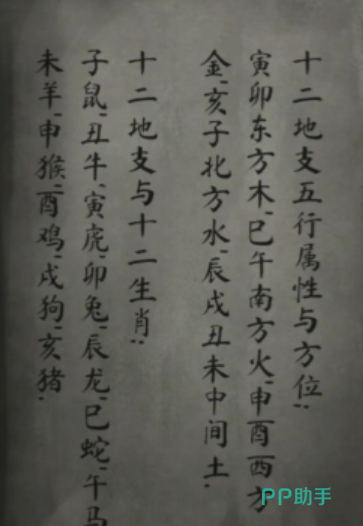 十二地支五行属性与方位：
寅卯东方木、巳午南方火、申酉西方
金、亥子北方水、辰戌丑未中间土.
十二地支与十二生肖：
子鼠、丑牛、寅虎、卯兔、辰龙、巳蛇、午马
未羊、申猴、酉鸡、戌狗、亥猪.
PP助手